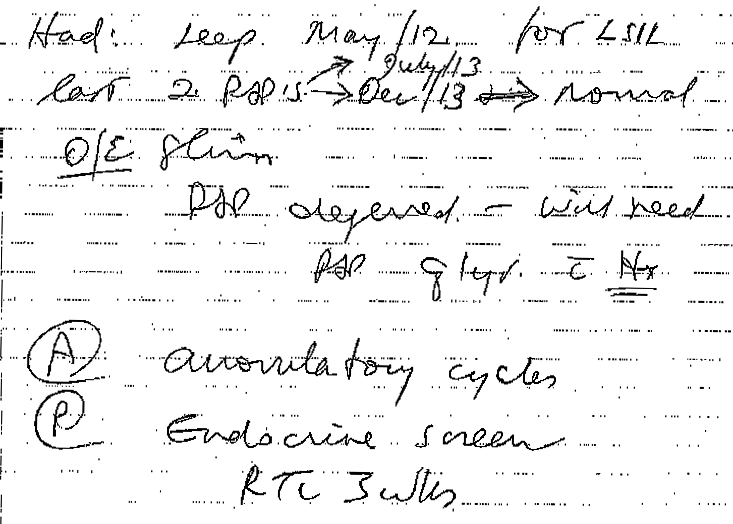 Had: Leep May/12 for LSIL
July/13
last 2 PAP's → Dec/13 ⇒ normal
O/E
PAP deferred - will need
PAP q 1yr. c̄ Hx
A anovulatory cycles
P Endocrine screen
RTC 3 wks